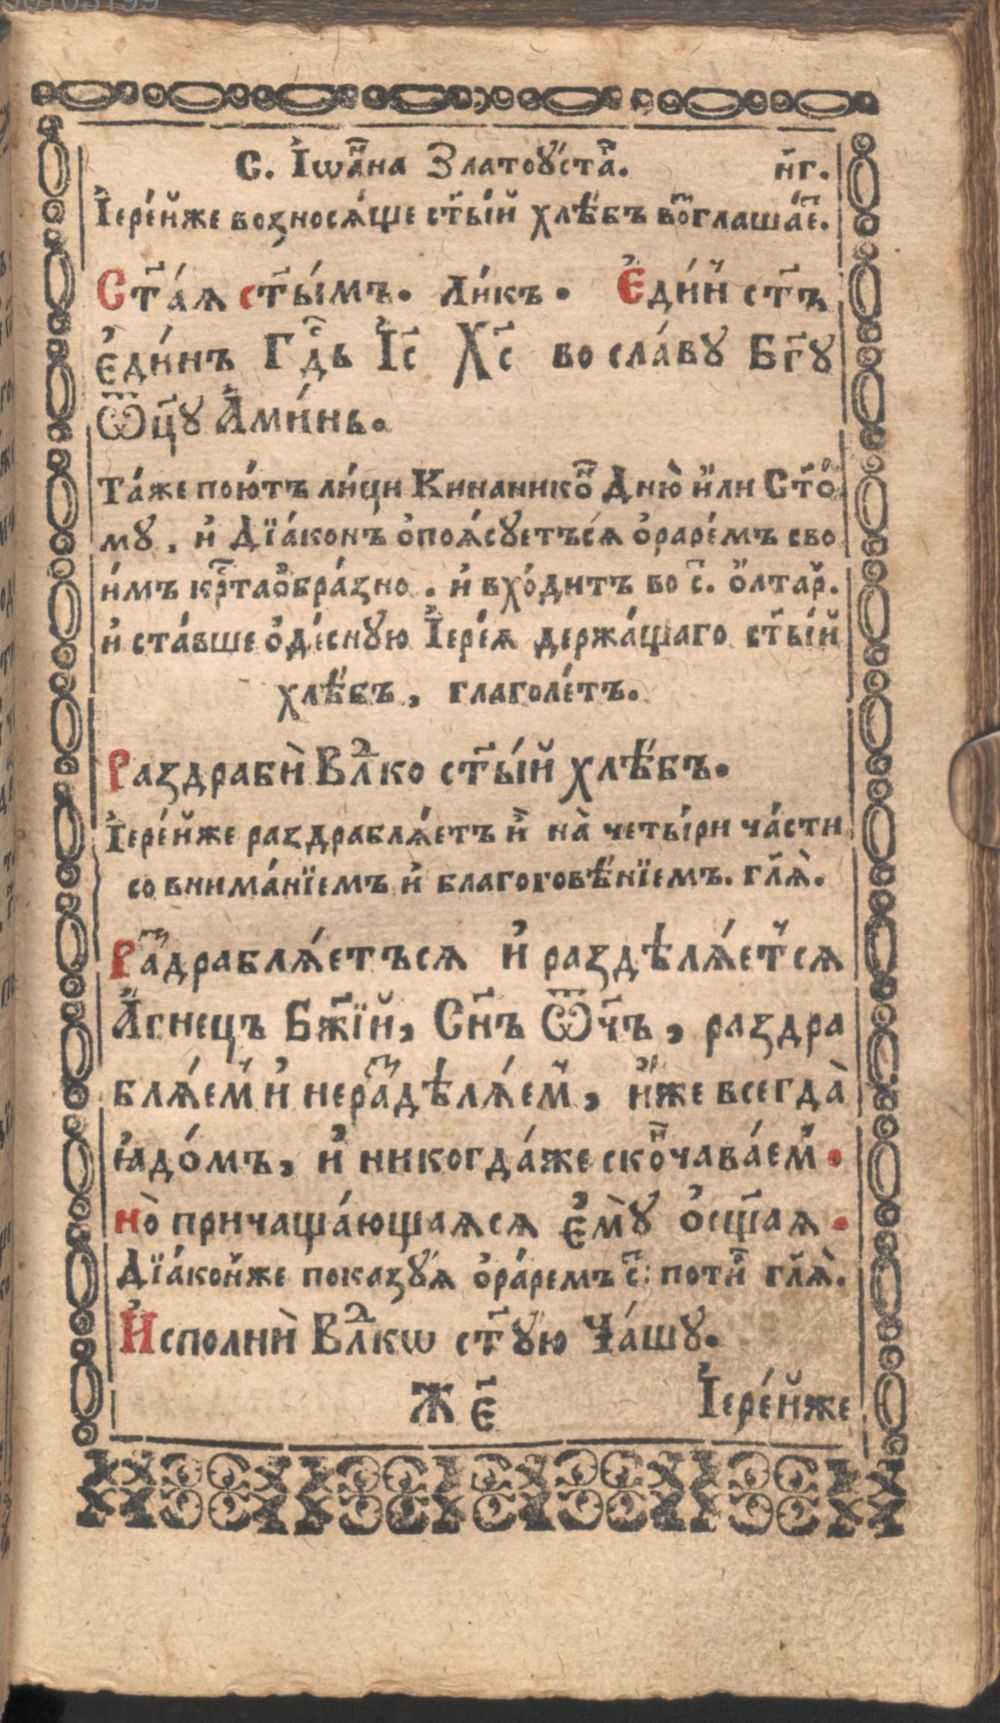 С. Їѡа́нна Златоꙋ́стаⷢ҇. н҃г.
Їере́йже возносѧ́ще ст҃ы́й хлѣ́бъ воⷥ҇глаша́еⷮ҇.
Ст҃а́ѧ ст҃ы́мъ. Ли́къ. Є҆ди́н ст҃ъ
є҆ди́нъ Гдⷭ҇ь І҆с҃ Хс҃ во сла́вꙋ Бг҃ꙋ
Ѿц҃ꙋ А҆ми́нь.
Та́же пою́тъ ли́ци Кинаникоⷩ҇ Дню̀ и҆̀ли Ст҃о́
мꙋ, и҆ Дїа́конъ ѻ҆поѧ́сꙋетъсѧ ѻ҆раре́мъ сво
и́мъ крⷭ҇таѻбра́зно. и҆ вхо́дитъ во с҃. Ѻ҆лтаⷬ҇.
и҆ ста́вше ѻ҆де́снꙋю І҆ере́ѧ держа́щаго ст҃ы́й
хлѣ́бъ, глаголе́тъ.
Раздрабѝ Влⷣко ст҃ы́й хлѣ́бъ.
І҆ере́йже раздраблѧ́етъ и҆̀ на̀ четы́ри ча́сти
со внима́нїемъ и҆ благоговѣ́нїемъ. гл҃ѧ̀.
Раⷥ҇драблѧ́етъсѧ и҆ раздѣлѧ́етсѧ
А҆́гнецъ Бж҃їй, Сн҃ъ Ѿч҃ъ, раздра
блѧ́ем и҆ нераⷥ҇дѣлѧ́ем, и҆́же всегда̀
ꙗ҆до́мъ, и҆ никогда́же скоⷩ҇чава́ем.
но̀ причаща́ющаѧсѧ є҆мꙋ̀ ѻ҆сщ҃аѧ.
Дїа́конже показꙋѧ ѻ҆ра́ремъ с҃: поти́ⷬ҇ гл҃ѧ̀.
И҆сполнѝ Влⷣкѡ ст҃ꙋ́ю Ча́шꙋ.
Ж є҃ І҆ере́йже